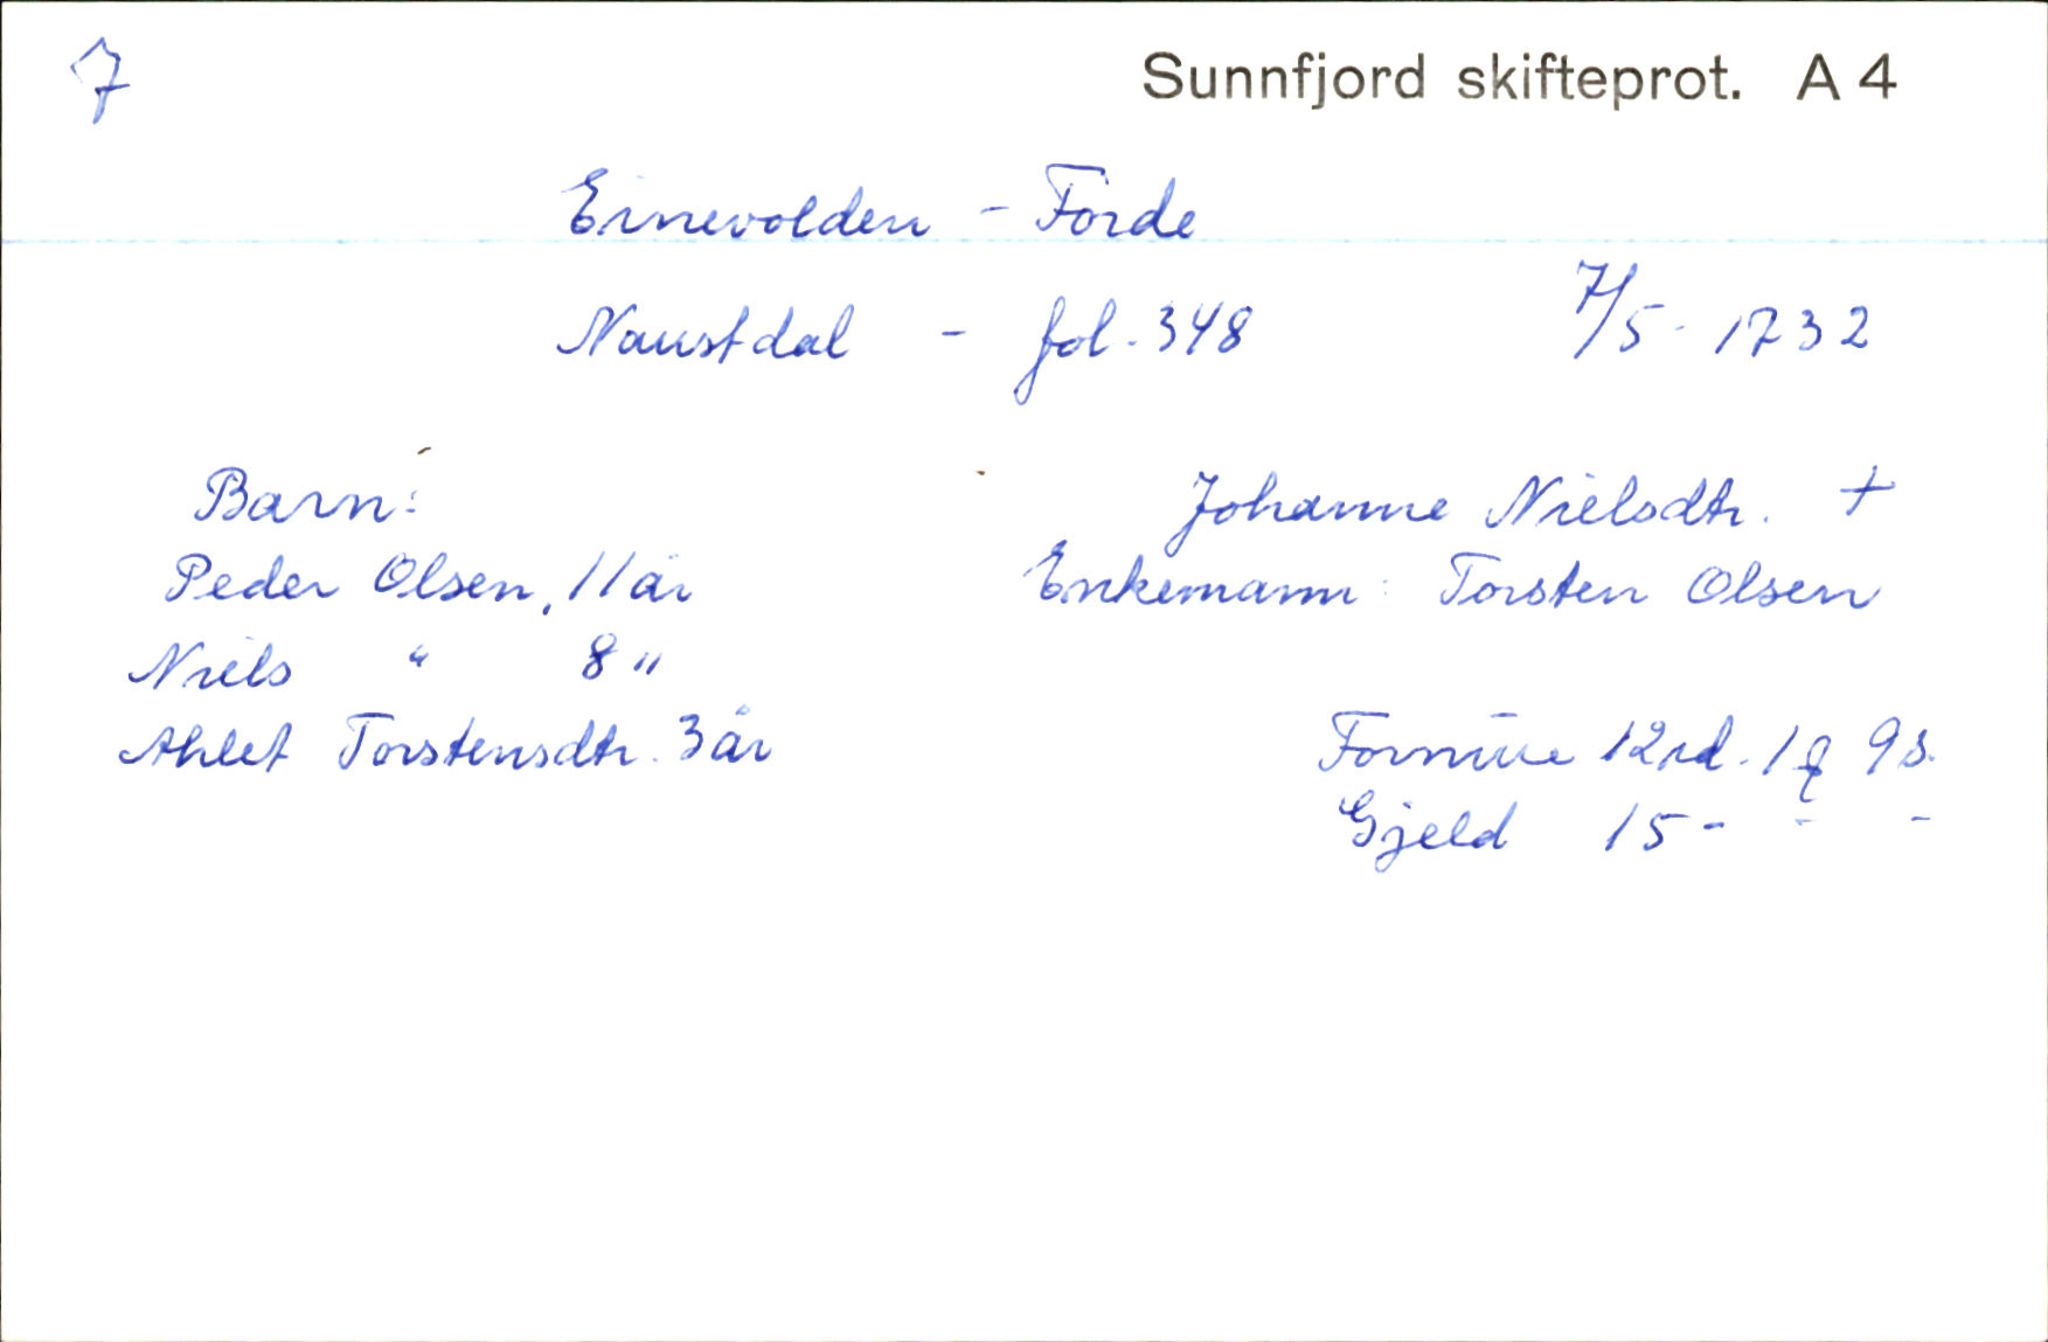 7
Sunnfjord skifteprot. A 4
Einevolden - Førde
Naustdal - fol. 348 7/5 - 1732
Barn:
Peder Olsen, 11 år
Niels " 8 "
Ahlet Torstensdtr. 3 år
Johanne Nielsdtr. +
Enkemann: Torsten Olsen
Formue 12 rd. 1 9 s.
Gjeld 15 - - -